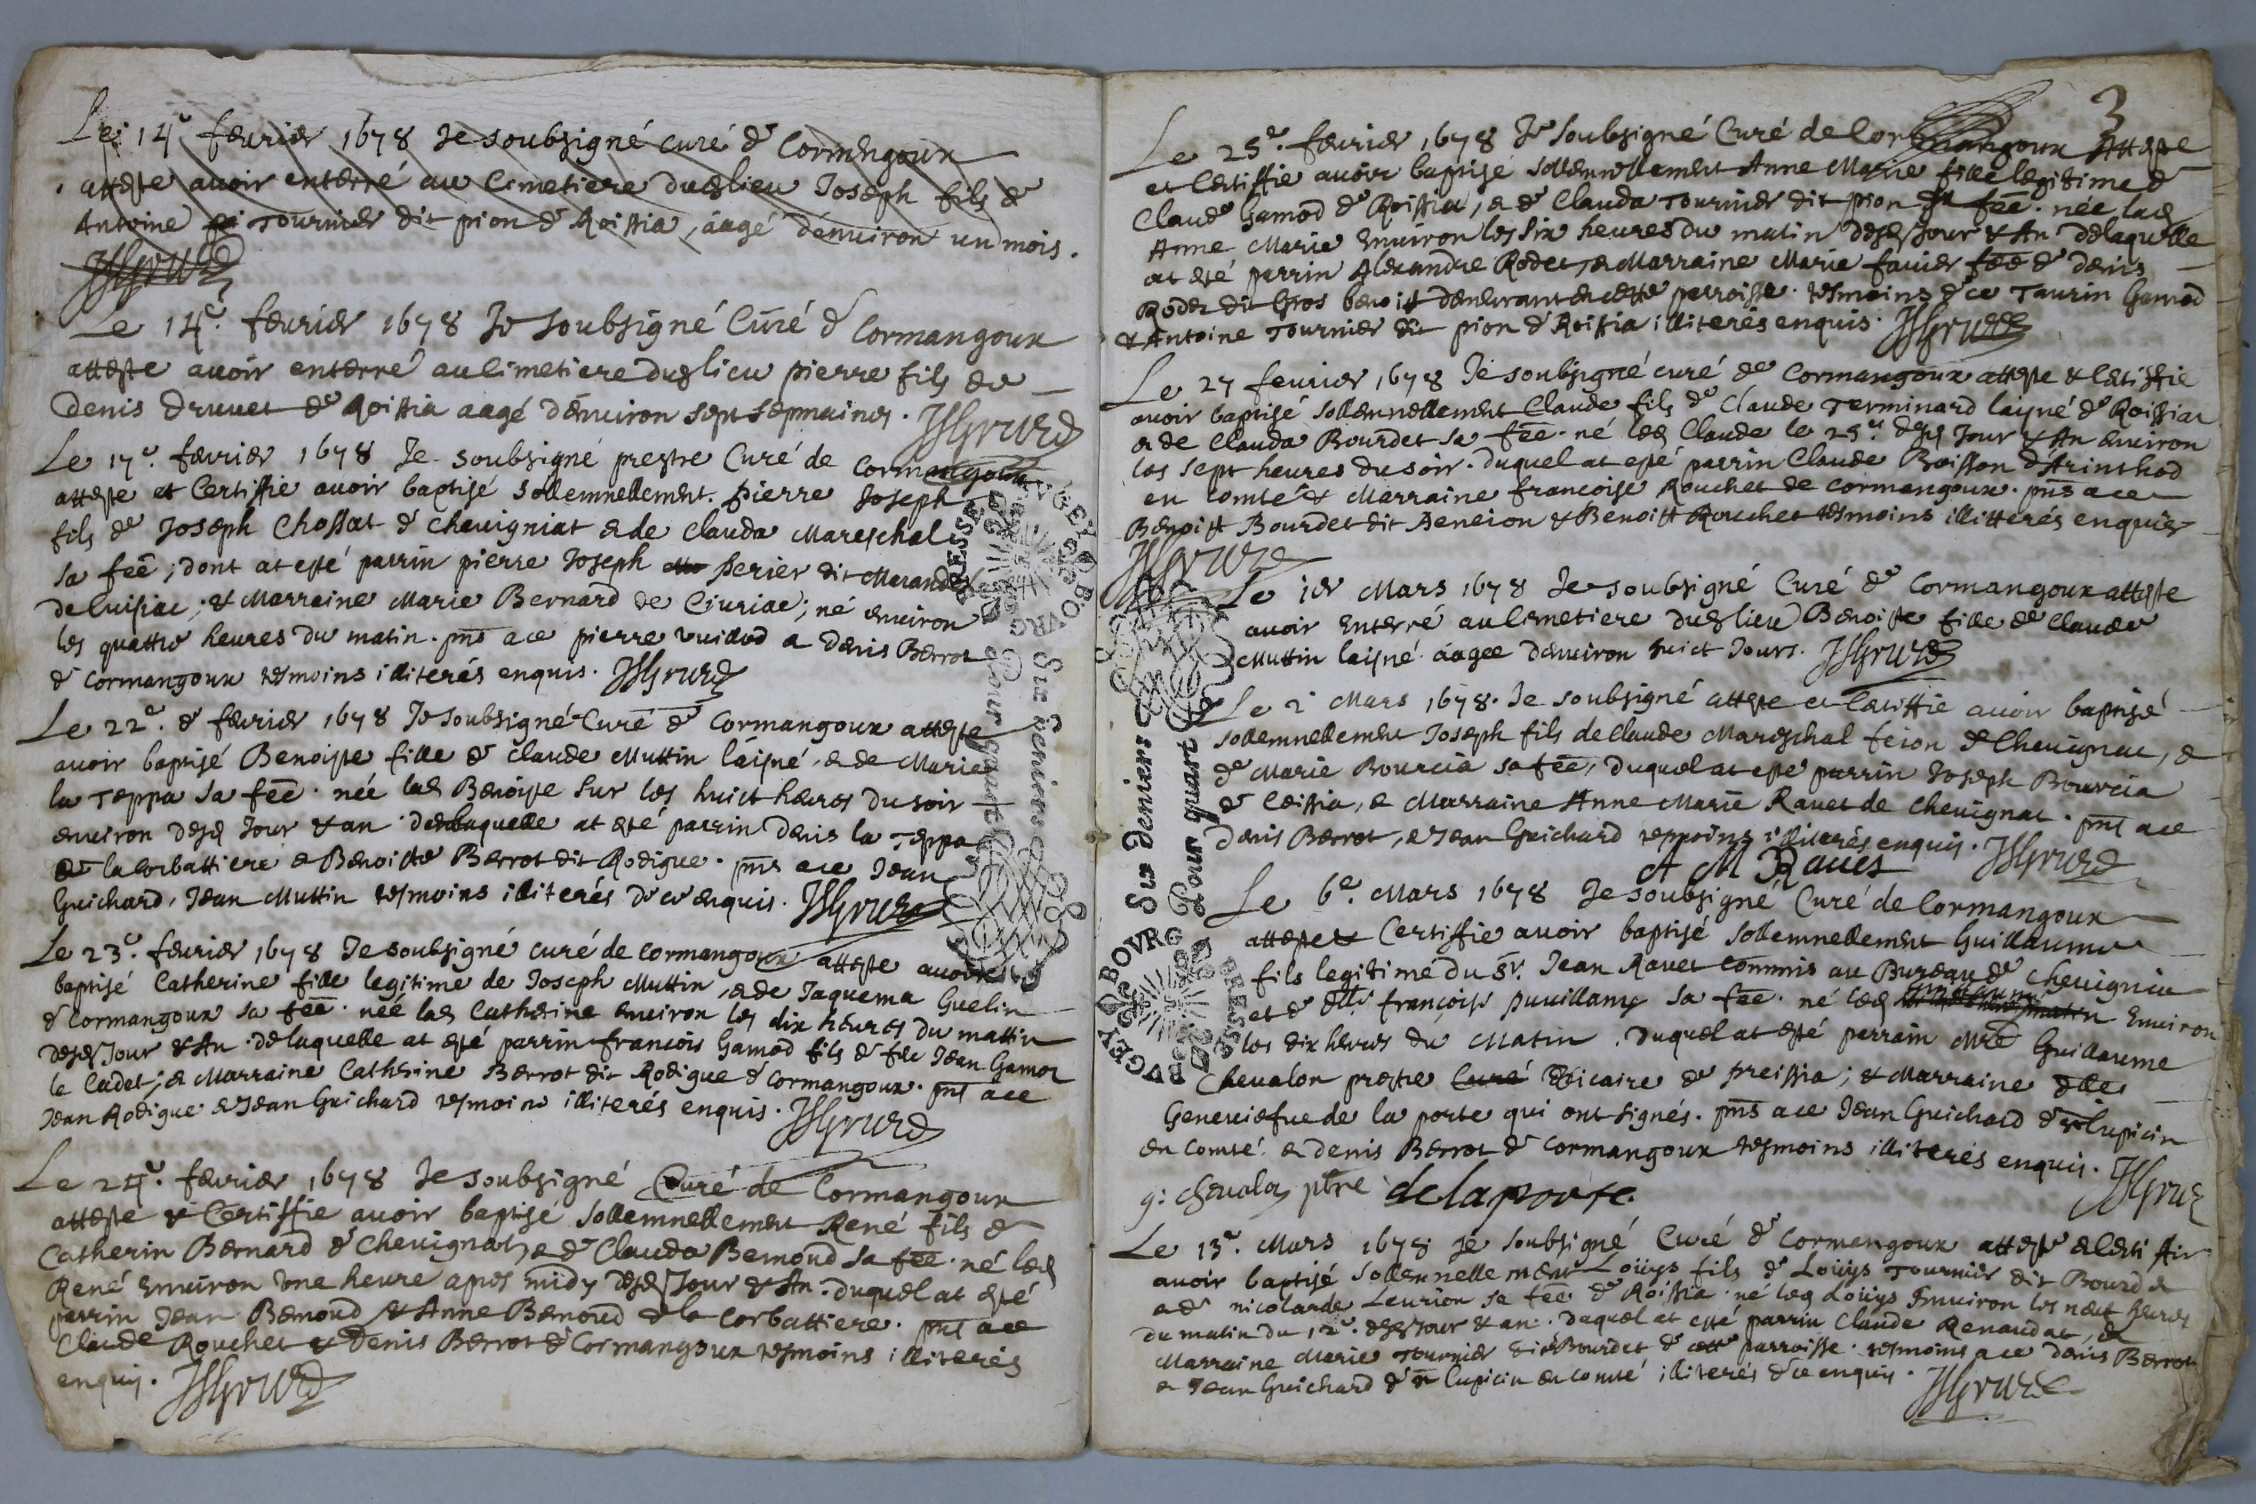 Le 14e. feurier 1678 Je soubsigné curé de Cormengoux
atteste auoir enterré au Cimetiere dud lieu Joseph fils de
Antoine Tournier dit pion de Roissia, aagé d'enuiron un mois.
Le 14e. feurier 1678 Je soubsigné Curé de Cormangoux
atteste auoir enterré au Cimetiere dud lieu pierre fils de
Denis Druuet de Roissia aagé d'enuiron sept sepmaines.
Le 17e. feurier 1678 Je soubsigné prestre Curé de Cormangoux
atteste et Certiffie auoir baptisé sollemnellement. pierre Joseph
fils de Joseph Chossat de cheuigniat & de Clauda Mareschal
sa fee; dont at esté parrin pierre Joseph perier dit Marandet
de Cuisiac; & Marraine Marie Bernard de Ciuriac; né enuiron
les quattre heures du matin. pns a ce pierre vuillod & Denis Berrot
de Cormangoux tesmoins illiterés enquis.
Le 22e. de feurier 1678 Je soubsigné Curé de Cormangoux atteste
auoir baptisé Benoiste fille de Claude Muttin l'aisné, & de Marie
la Teppa sa fee. née lad Benoiste sur les huict heures du soir
enuiron desd Jour & an. de laquelle at esté parrin Denis la Teppa
de la Corbattiere & Benoiste Berrot dit Rodigue. pns a ce Jean
Guichard, Jean Muttin tesmoins illiterés de ce enquis.
Le 23e. feurier 1678 Je soubsigné curé de Cormangoux atteste auoir
baptisé Catherine fille legitime de Joseph Muttin, & de Jaquema Guelin
de Cormangoux sa fee. née lad Catherine enuiron les dix heures du mattin
desd Jour & An. de laquelle at esté parrin francois Gamod fils de feu Jean Gamod
le Cadet; & Marraine Catherine Berrot dit Rodigue de Cormangoux. pnt a ce
Jean Rodigue & Jean Guichard tesmoins illiterés enquis.
Le 24e. feurier 1678 Je soubsigné Curé de Cormangoux
atteste & Certiffie auoir baptisé sollemnellement René fils de
Catherin Bernard de Cheuignat, & de Clauda Bemond sa fee. né led
René Enuiron Vne heure apres midy desd Jour & An. duquel at esté
parrin Jean Bemond & Anne Bemond de la Corbattiere. pnt a ce
Claude Rouchet & Denis Berrot de Cormangoux tesmoins illiterés
enquis.
3
Le 25e. feurier 1678 Je soubsigné Curé de Cormangoux Atteste
et Certiffie auoir baptisé sollemnellement Anne Marie fille legitime de
Claude Gamod de Roissia, & de Clauda Tournier dit pion sa fee. née lad
Anne Marie Enuiron les six heures du matin desd Jour & An delaquelle
at esté parrin Alexandre Rodet, & Marraine Marie fauier fee de denis
Rodet dit Gros benoist demeurant en cette parroisse. tesmoins de ce Taurin Gamod
& Antoine Tournier dit pion de Roissia illiterés enquis.
Le 27 feurier 1678 Je soubsigné curé de Cormangoux atteste & Certiffie
auoir baptisé sollemnellement Claude fils de Claude Terminard laisné de Roissiat
& de Clauda Bourdet sa fee. né led Claude le 25e. desd Jour & An enuiron
les sept heures du soir. duquel at esté parrin Claude Boisson d'Arinthod
en comté & Marraine francoise Rouchet de Cormangoux. pns a ce
Benoist Bourdet dit & Benoist Rouchet tesmoins illitterés enquis
Le 1er Mars 1678 Je soubsigné Curé de Cormangoux atteste
auoir Enterré au Cimetiere dud lieu Benoiste fille de Claude
Muttin laisné aagee d'enuiron huict Jours.
Le 2e Mars 1678. Je soubsigné atteste et Certiffie auoir baptisé
sollemnellement Joseph fils de Claude Mareschal feion de Cheuignat, &
de Marie Bourcia sa fee, duquel at esté parrin Joseph Bourcia
de Ceissia, & Marraine Anne Marie Rauet de Cheuignat. pnt a ce
Denis Berrot, & Jean Guichard tesmoins illiterés enquis.
A M Rauet
Le 6e. Mars 1678 Je soubsigné Curé de Cormangoux
atteste & Certiffie auoir baptisé sollemnellement Guillaume
fils legitime du Sr. Jean Rauet Commis au Bureau de cheuignia
et de dlle françoise puuillamy sa fee. né led Guillaume Enuiron
les dix heures du Matin. duquel at esté parrain Mre Guillaume
Cheualon prestre Curé Vicaire de preissia; & Marraine dlle
Geneuiefue de la porte qui ont signés. pns a ce Jean Guichard de St lupicin
en Comté. & Denis Berrot de Cormangoux tesmoins illiterés enquis.
g: cheualon ptre delaporte.
Le 13e. Mars 1678 Je soubsigné Curé de Cormangoux atteste & Certiffie
auoir baptisé sollennellement Loüys fils de Loüys Tournier dit Bourdet
& de nicolarde Leurion sa fee de Roissia. né led Loüys Enuiron les neuf heures
du matin du 12e. desd Jour & an. duquel at esté parrin Claude Renaudat, &
Marraine Marie Tournier dit Bourdet de cette parroisse. tesmoins a ce denis Berrot
& Jean Guichard de St lupicin en comté illiterés de ce enquis.
BRESSE BVGEY BOVRG
Six Deniers
Pour quart
Six deniers
Pour quart
BRESSE BVGEY BOVRG